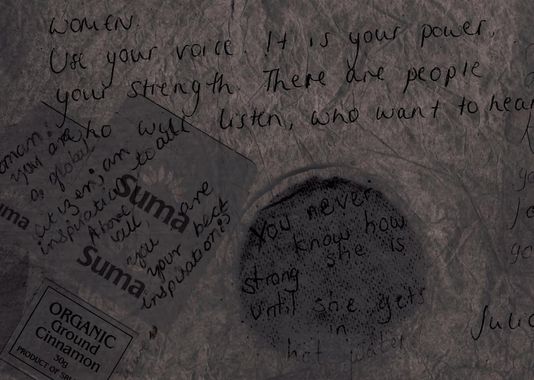 women.
Use your voice. It is your power,
your strength. There are people
who will listen, who want to hear
woman:
you are
a global
citizen; an
inspiration to all
Above
all
you are
your best
inspiration is
Suma
Suma
Suma
ORGANIC
Ground
Cinnamon
50g
PRODUCT OF SRI
You never
know how
strong she is
until she gets
in
hot water
Julia